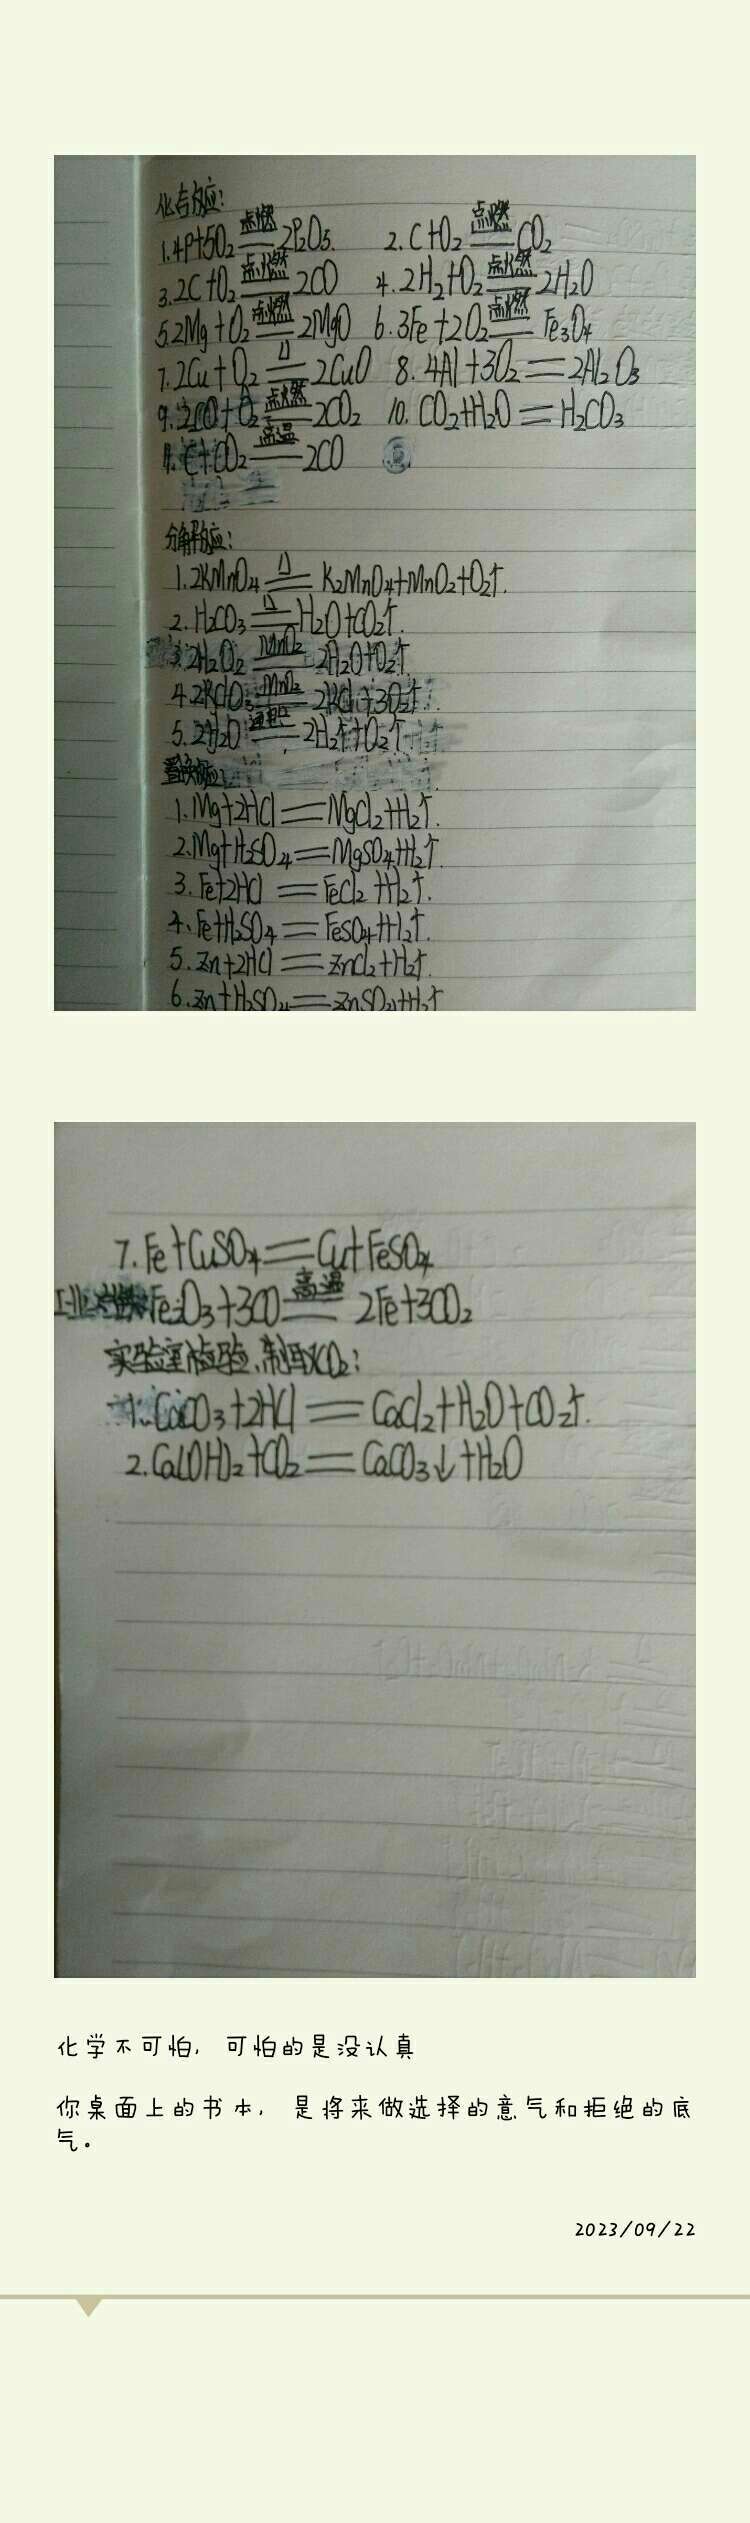 化合反应:
1.4P+5O₂ 点燃══ 2P₂O₅. 2.C+O₂ 点燃══ CO₂
3.2C+O₂ 点燃══ 2CO 4.2H₂+O₂ 点燃══ 2H₂O
5.2Mg+O₂ 点燃══ 2MgO 6.3Fe+2O₂ 点燃══ Fe₃O₄
7.2Cu+O₂ △══ 2CuO 8.4Al+3O₂══2Al₂O₃
9.2CO+O₂ 点燃══ 2CO₂ 10.CO₂+H₂O══H₂CO₃
11.C+CO₂ 高温══ 2CO
分解反应:
1.2KMnO₄ △══ K₂MnO₄+MnO₂+O₂↑.
2.H₂CO₃ △══ H₂O+CO₂↑.
3.2H₂O₂ MnO₂══ 2H₂O+O₂↑
4.2KClO₃ MnO₂══ 2KCl+3O₂↑.
5.2H₂O 通电══ 2H₂↑+O₂↑
置换反应:
1.Mg+2HCl══MgCl₂+H₂↑.
2.Mg+H₂SO₄══MgSO₄+H₂↑.
3.Fe+2HCl══FeCl₂+H₂↑.
4.Fe+H₂SO₄══FeSO₄+H₂↑.
5.Zn+2HCl══ZnCl₂+H₂↑.
6.Zn+H₂SO₄══ZnSO₄+H₂↑
7.Fe+CuSO₄══Cu+FeSO₄
工业Fe₂O₃+3CO 高温══ 2Fe+3CO₂
实验室检验、制取CO₂:
1.CaCO₃+2HCl══CaCl₂+H₂O+CO₂↑.
2.Ca(OH)₂+CO₂══CaCO₃↓+H₂O
化学不可怕, 可怕的是没认真
你桌面上的书本, 是将来做选择的意气和拒绝的底
气。
2023/09/22